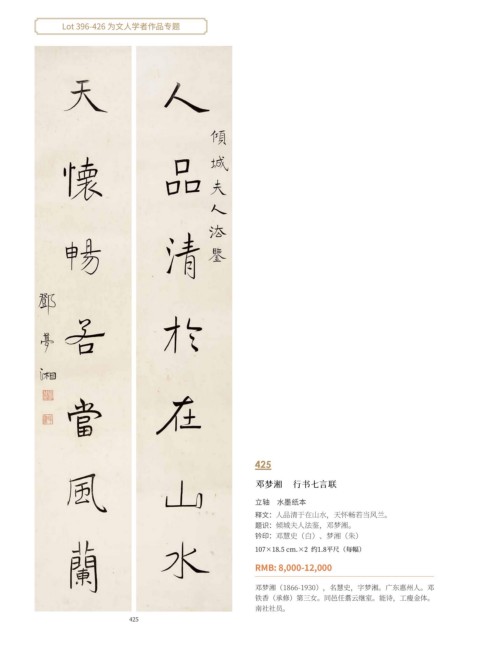 Lot 396-426 为文人学者作品专题
人品清於在山水
傾城夫人法鑒
天懷暢若當風蘭
鄧夢湘
425
425
邓梦湘 行书七言联
立轴 水墨纸本
释文：人品清于在山水，天怀畅若当风兰。
题识：倾城夫人法鉴，邓梦湘。
钤印：邓慧史（白）、梦湘（朱）
107×18.5 cm.×2 约1.8平尺（每幅）
RMB: 8,000-12,000
邓梦湘（1866-1930），名慧史，字梦湘。广东惠州人。邓
铁香（承修）第三女。同邑任囊云继室。能诗，工瘦金体。
南社社员。